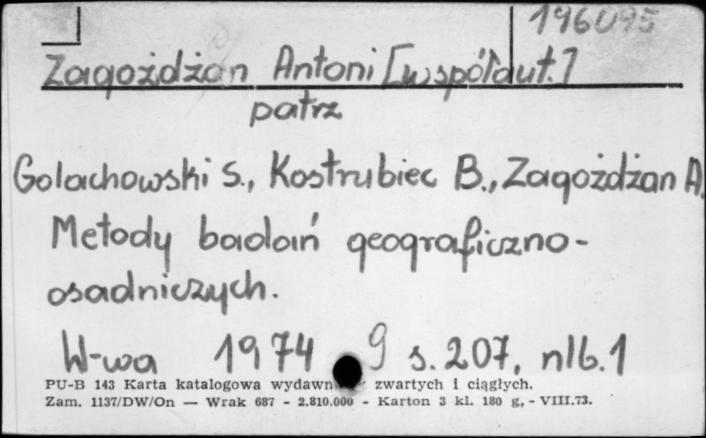 196095
Zagożdżan Antoni [współaut.]
patrz
Golachowski S., Kostrubiec B., Zagożdżan A.
Metody badań geograficzno-
osadniczych.
W-wa 1974 9 s. 207, nlb. 1
PU-B 143 Karta katalogowa wydawn zwartych i ciągłych.
Zam. 1137/DW/On — Wrak 687 - 2.810.000 - Karton 3 kl. 180 g, - VIII.73.